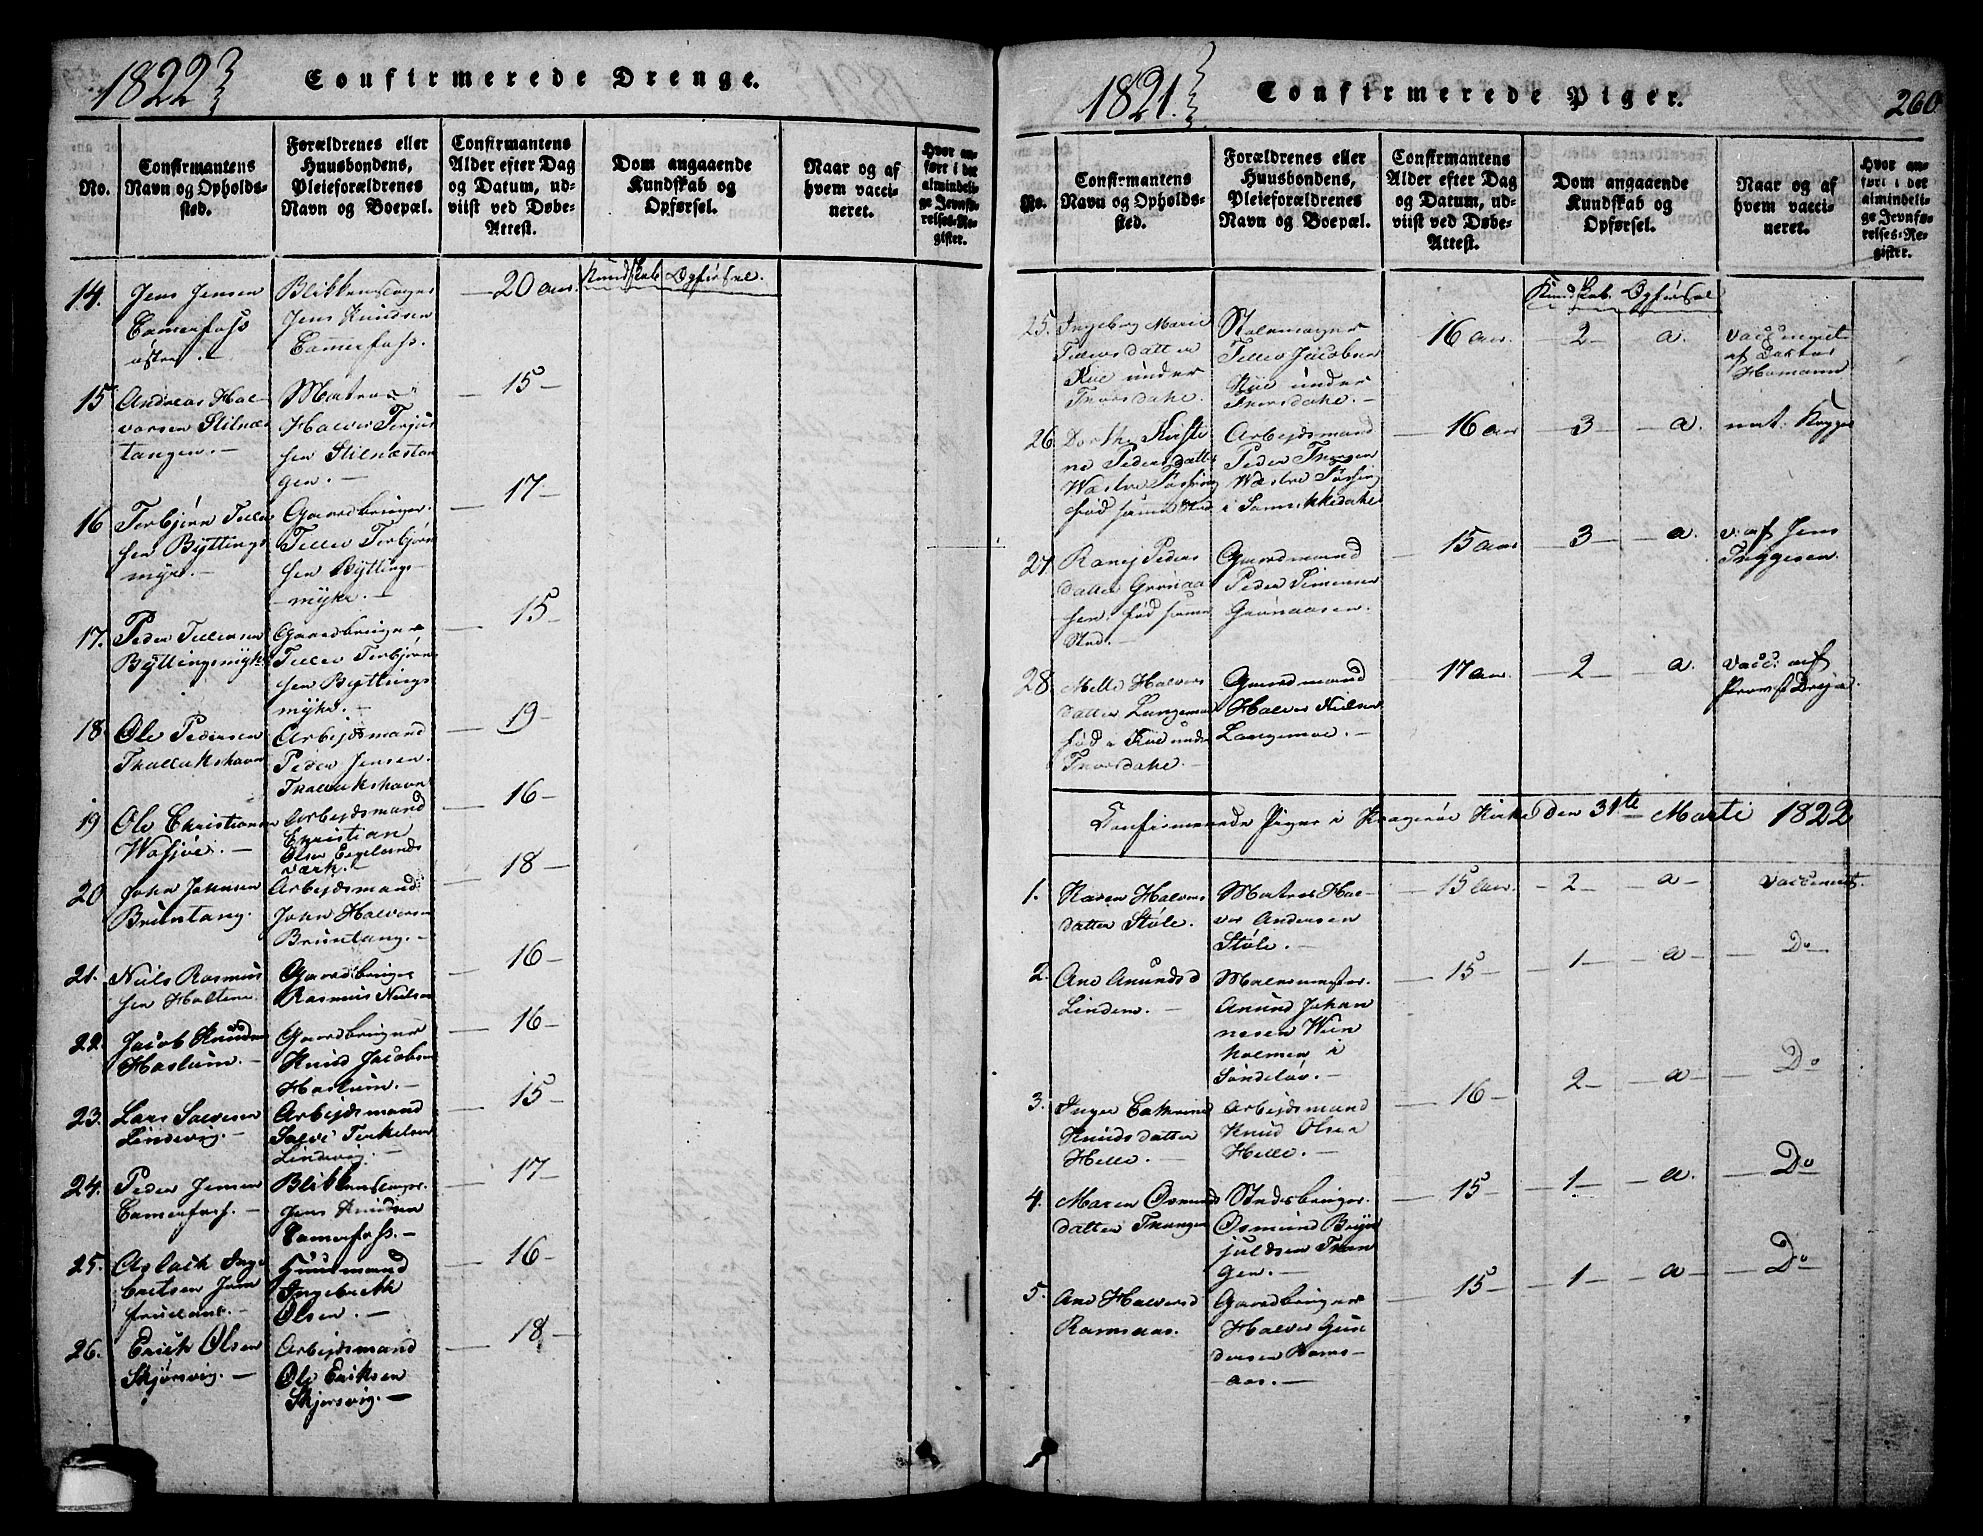 1822
Confirmerede Drenge.
No.
Confirmantens
Navn og Opholds-
sted.
Forældrenes eller
Huusbondens,
Pleieforældrenes
Navn og Boepæl.
Confirmantens
Alder efter Dag
og Datum, ud-
viist ved Døbe-
Attest.
Dom angaaende
Kundskab og
Opførsel.
Naar og af
hvem vacci-
neret.
Hvor an-
ført i det
almindeli-
ge Jevnfø-
relses-Re-
gister.
Kundskab Opførsel.
14. Jens Jensen
Camerfoss
østre.
Blikkenslager
Jens Knudsen
Camerfoss.
20 aar
15 Andreas Hal-
vorsen Stilnæs
tangen.
Matros
Halvor Terjus
sen Stilnæstan
gen.
15
16 Terbjørn Tellef
sen Byttings
myr.
Gaardbruger
Tellef Terbjørn
sen Byttings-
myhr.
17
17. Peder Tellefsen
Byttingsmyhr
Gaardbruger
Tellef Terbjørn
sen Byttings
myhr.
15
18. Ole Pedersen
Thallakshavn
Arbejdsmand
Peder Jensen
Thallakshavn
19
19 Ole Christiansen
Wasjøe.
Arbejdsmand
Christian
Olsen Egelands
værk.
16
20 John Johnsen
Bruntang.
Arbejdsmand
John Halvorsen
Bruntang.
18
21. Niels Rasmus
sen Holtene
Gaardbruger
Rasmus Nielsen
16
22. Jacob Knudsen
Haslum.
Gaardbruger
Knud Jacobsen
Haslum.
16
23. Lars Salvesen
Lindevig.
Arbejdsmand
Salve Terkelsen
Lindevig.
15
24. Peder Jensen
Camerfoss.
Blikkenslager
Jens Knudsen
Camerfoss.
17
25. Aslach Inge
bretsen Jom
frueland.
Huusmand
Ingebreth
Olsen.
16
26. Erich Olsen
Skjørsvig.
Arbejdsmand
Ole Eriksen
Skjørsvig.
18
1821.
Confirmerede Piger.
260
No.
Confirmantens
Navn og Opholds-
sted.
Forældrenes eller
Huusbondens,
Pleieforældrenes
Navn og Boepæl.
Confirmantens
Alder efter Dag
og Datum, ud-
viist ved Døbe-
Attest.
Dom angaaende
Kundskab og
Opførsel.
Naar og af
hvem vacci-
neret.
Hvor an-
ført i det
almindeli-
ge Jevnfø-
relses-Re-
gister.
Kundskab Opførsel
25. Ingeborg Marie
Tellefsdatter
Kiie under
Thorsdahl.
Tellef Jacobsen
Kiie under
Thorsdahl.
16 aar
2
a.
vaccineret
af Doctor
Homann
26. Dorthe Kirsti
ne Pedersdatter
Wæstre Tøssing
fød samme Sted
Arbejdsmand
Wæstre Tøssing
i Sannikkedahl
16 aar
3
a.
nat: Kopper
27. Ranej Peders
datter Grønaa
sen. fød samme
Sted.
Gaardmand
Peder Simonsen
Grønaasen.
15 aar
3
a.
v. af Jens
Tryggesen
28. Melle Halvors
datter Langemoe
fød i Kiie under
Thorsdahl.
Gaardmand
Halvor Nielsen
Langemoe.
17 aar
2
a.
vacc: af
Provst Dreyer.
Confirmerede Piger i Kragerøe Kirke den 31te Marti 1822
1. Karen Halvors
datter Støle.
Matros Hal-
vor Andersen
Støle.
15 aar.
2
a
vaccineret.
2. Ane Anundsd
Linden.
Anund Johan
nesen Wien
holmen i
Søndeløv.
15
1
a
Do
3. Inger Cathrine
Knudsdatter
Helle.
Arbejdsmand
Knud Olsen
Helle.
16
2
a
Do
4. Maren Osmunds
datter Thangen
Stedsbruger
Osmund Bryn
juldsen Than
gen.
15
1
a.
Do
5. Ane Halvorsd
Ramsaas.
Gaardbruger
Halvor Gun
dersen Rams-
aas.
15
1
a
Do